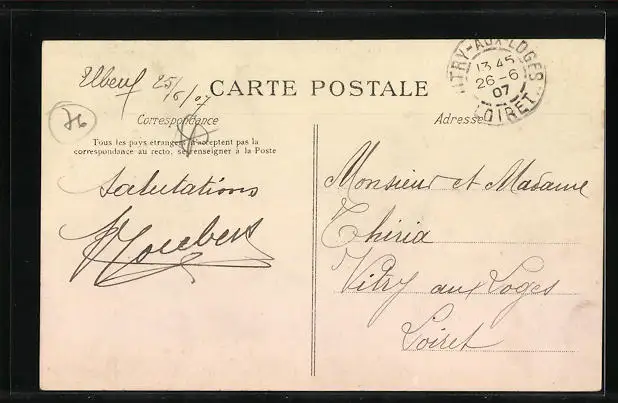 Elbeuf 25/6/07
CARTE POSTALE
VITRY-AUX-LOGES
13 45
26-6
07
LOIRET
76
Correspondance
Adresse
Tous les pays étrangers n'acceptent pas la
correspondance au recto, se renseigner à la Poste
Salutations
Monsieur et Madame
Thiria
Vitry aux Loges
Loiret